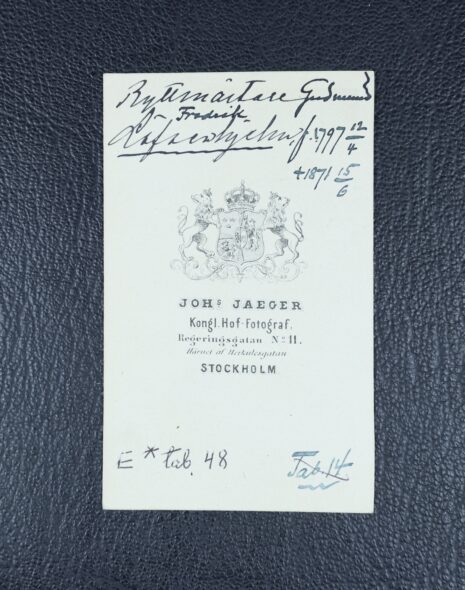 Ryttmästare Gudmund
Fredrik
f. 1797 12/4
+ 1871 15/6
JOHS JAEGER
Kongl. Hof-Fotograf.
Regeringsgatan No 11.
Hörnet af Herkulesgatan
STOCKHOLM
E * tab. 48
Tab. 14.